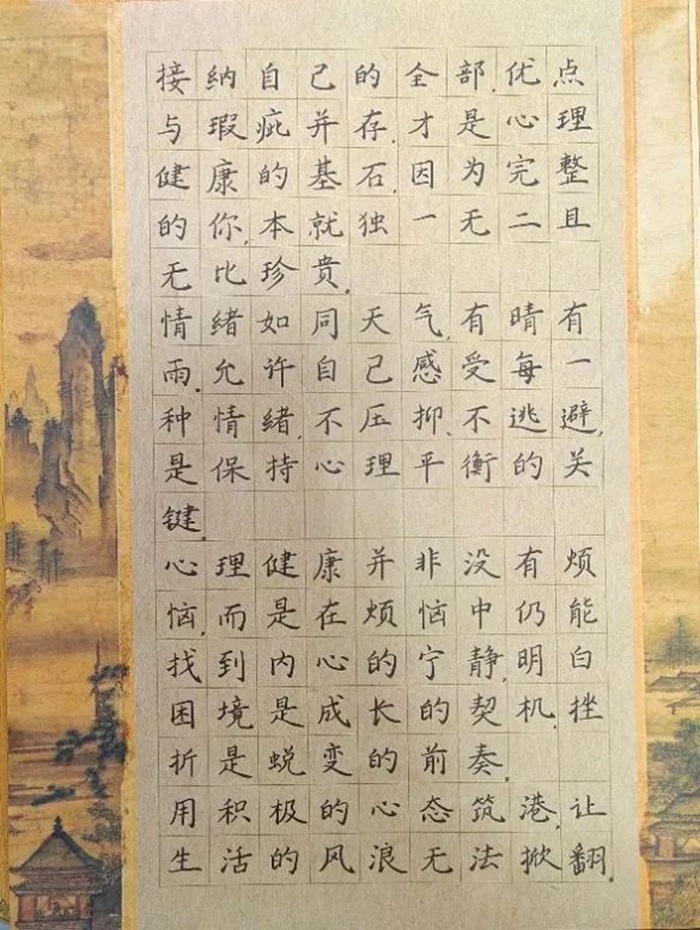 接纳自己的全部,优点
与瑕疵并存,才是心理
健康的基石,因为完整
的你,本就独一无二且
无比珍贵.
情绪如同天气,有晴有
雨.允许自己感受每一
种情绪,不压抑、不逃避,
是保持心理平衡的关
键.
心理健康并非没有烦
恼,而是在烦恼中仍能
找到内心的宁静,明白
困境是成长的契机,挫
折是蜕变的前奏.
用积极的心态筑港,让
生活的风浪无法掀翻.